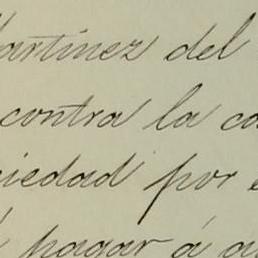 artinez del
contra la ca
iedad por e
pagar á a